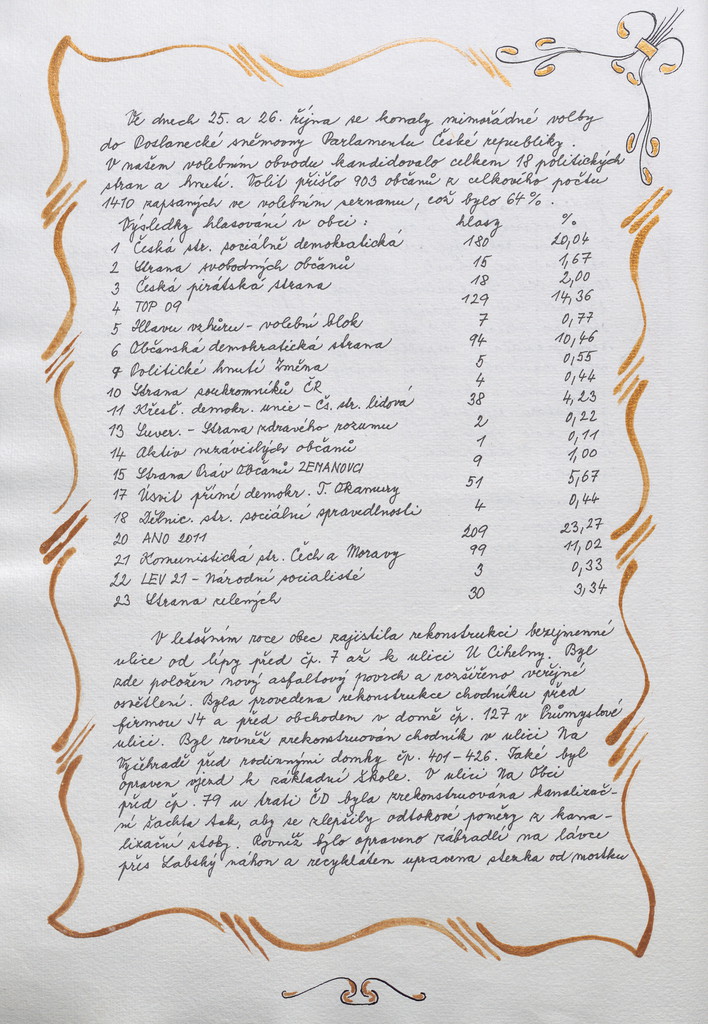 Ve dnech 25. a 26. října se konaly mimořádné volby
do Poslanecké sněmovny Parlamentu České republiky.
V našem volebním obvodu kandidovalo celkem 18 politických
stran a hnutí. Volit přišlo 903 občanů z celkového počtu
1410 zapsaných ve volebním seznamu, což bylo 64%.
Výsledky hlasování v obci: hlasy %
1 Česká str. sociálně demokratická 180 20,04
2 Strana svobodných občanů 15 1,67
3 Česká pirátská strana 18 2,00
4 TOP 09 129 14,36
5 Hlavu vzhůru - volební blok 7 0,77
6 Občanská demokratická strana 94 10,46
9 Politické hnutí Změna 5 0,55
10 Strana soukromníků ČR 4 0,44
11 Křesť. demokr. unie - Čs. str. lidová 38 4,23
13 Suver. - Strana zdravého rozumu 2 0,22
14 Aktiv nezávislých občanů 1 0,11
15 Strana Práv Občanů ZEMANOVCI 9 1,00
17 Úsvit přímé demokr. T. Okamury 51 5,67
18 Dělnic. str. sociální spravedlnosti 4 0,44
20 ANO 2011 209 23,27
21 Komunistická str. Čech a Moravy 99 11,02
22 LEV 21 - Národní socialisté 3 0,33
23 Strana zelených 30 3,34
V letošním roce obec zajistila rekonstrukci bezejmenné
ulice od lípy před čp. 7 až k ulici U Cihelny. Byl
zde položen nový asfaltový povrch a rozšířeno veřejné
osvětlení. Byla provedena rekonstrukce chodníku před
firmou J4 a před obchodem v domě čp. 127 v Průmyslové
ulici. Byl rovněž zrekonstruován chodník v ulici Na
Vyšehradě před rodinnými domky čp. 401-426. Také byl
opraven vjezd k základní škole. V ulici Na Obci
před čp. 79 u trati ČD byla zrekonstruována kanalizač-
ní šachta tak, aby se zlepšily odtokové poměry z kana-
lizační stoky. Rovněž bylo opraveno zábradlí na lávce
přes Labský náhon a recyklátem upravena stezka od mostku